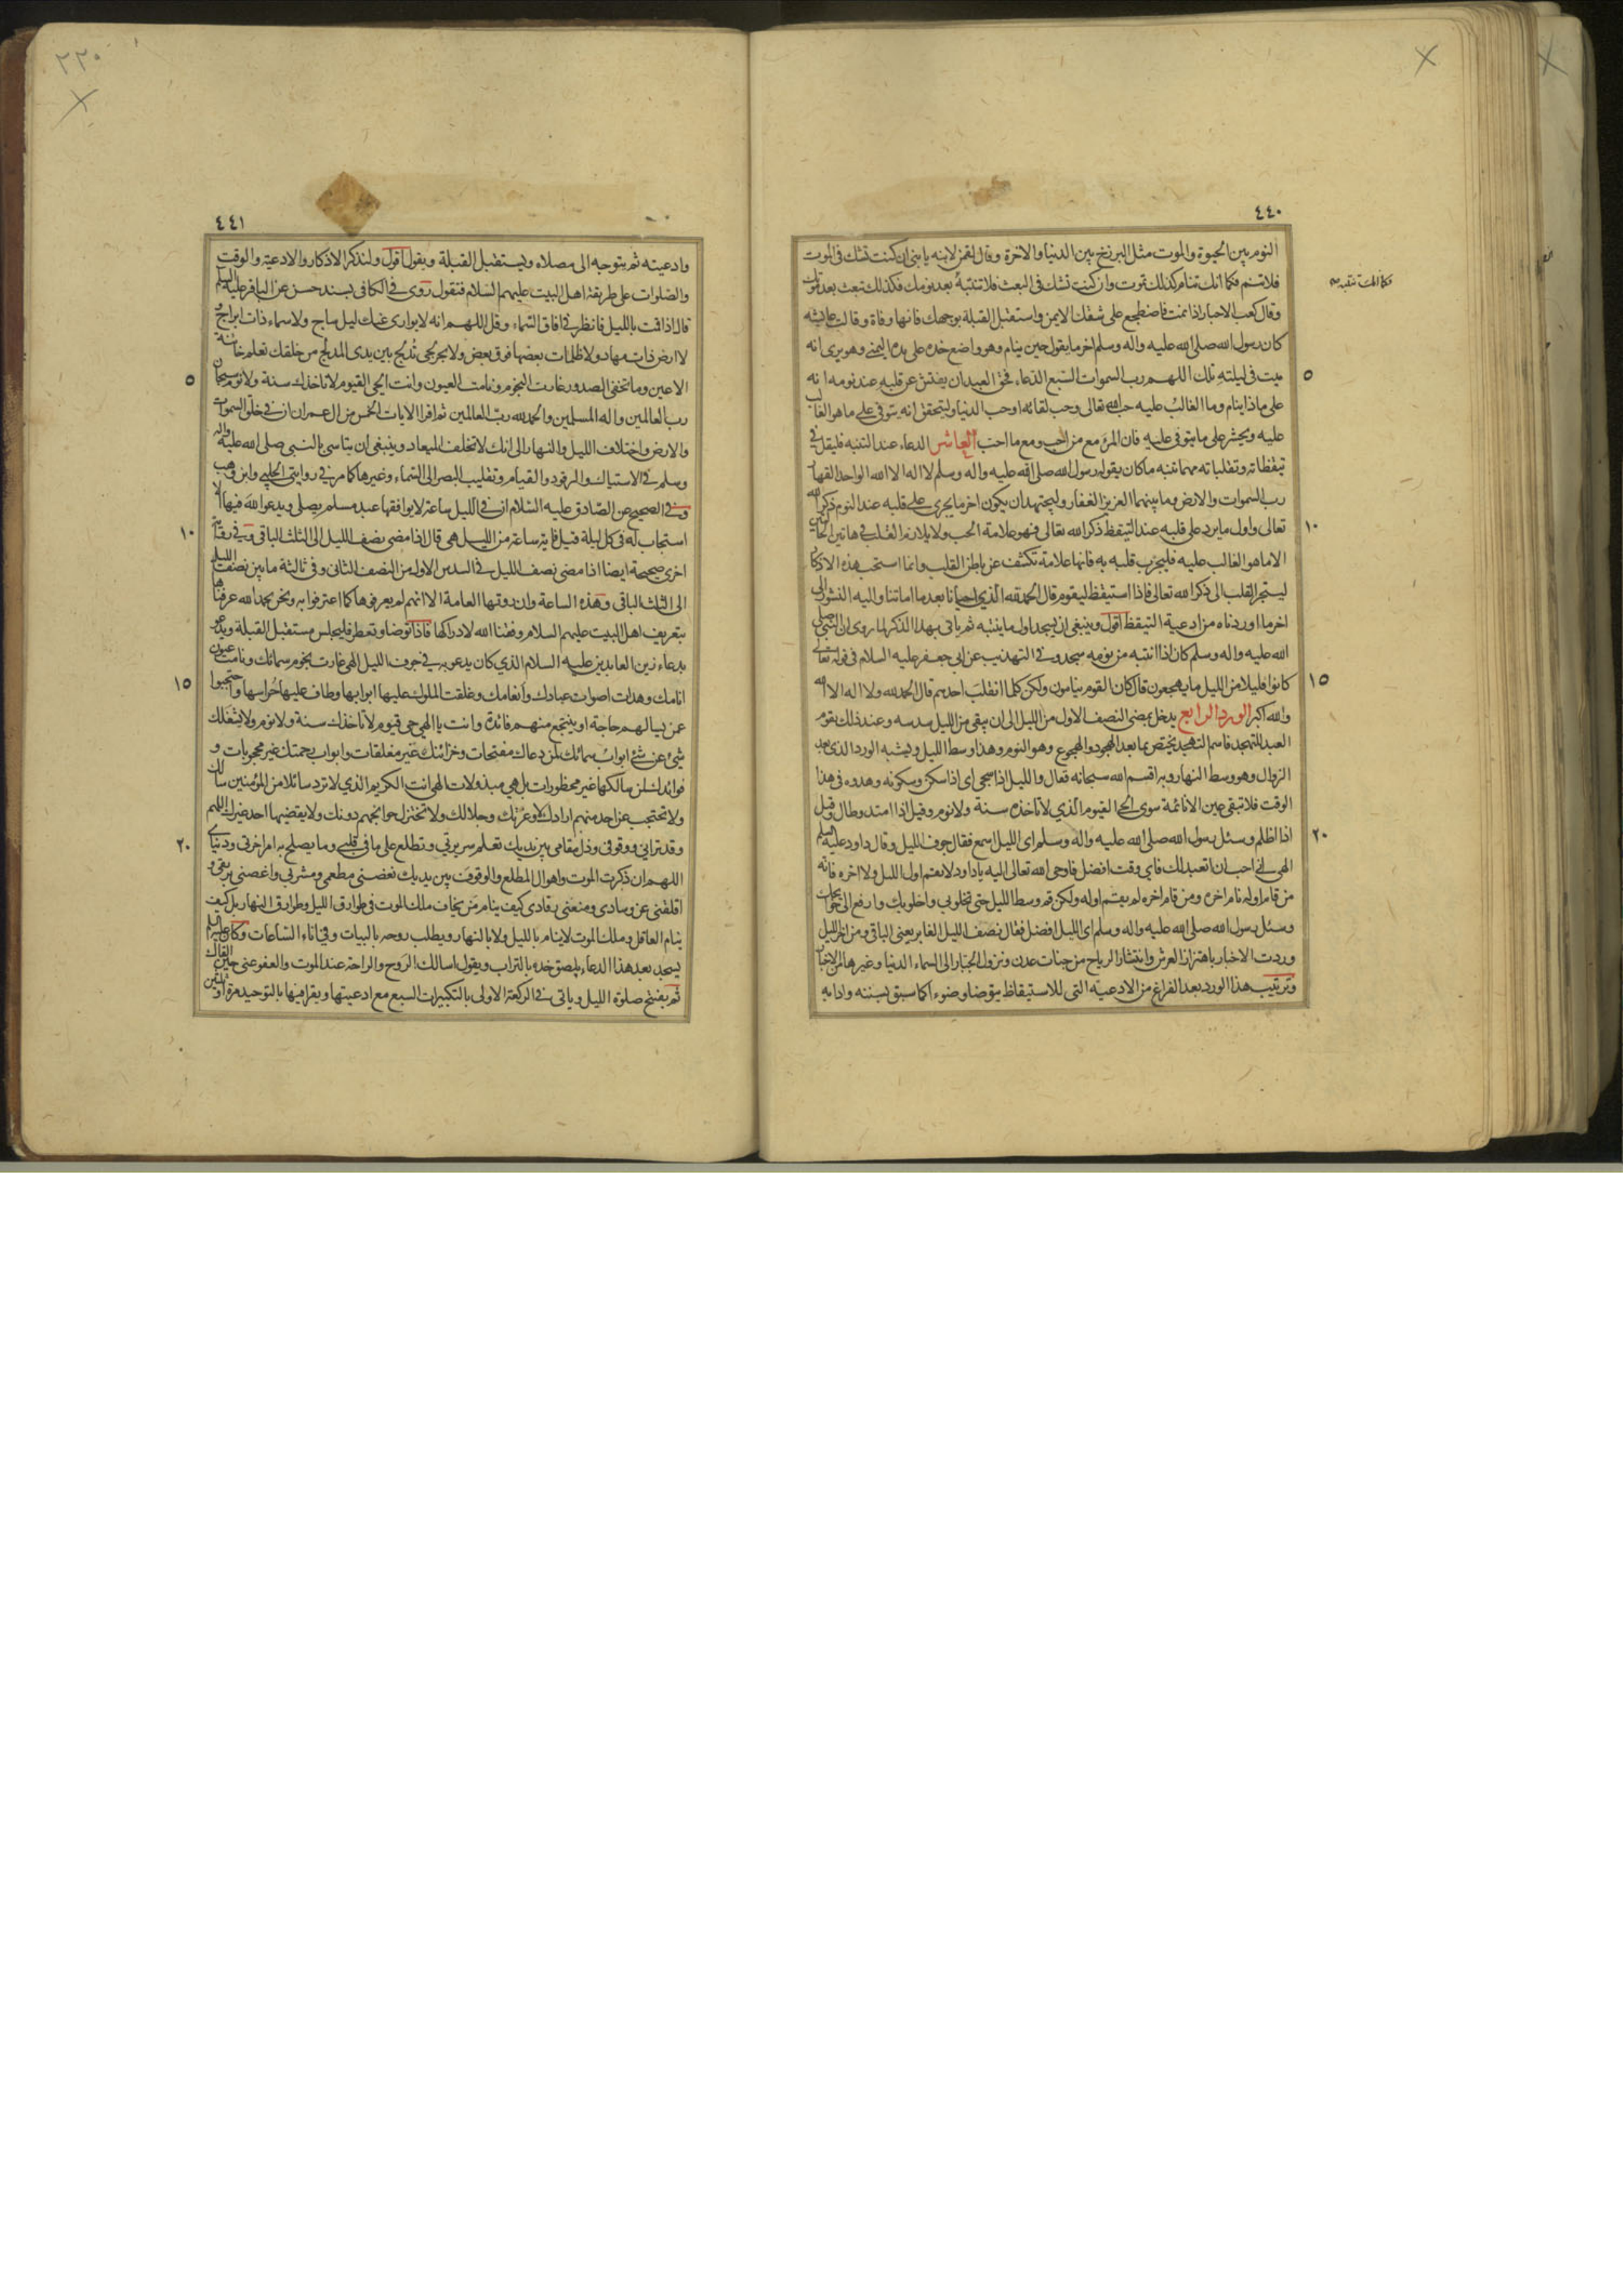 ٤٤٠
النوم بين الحيوة والموت مثل البرزخ بين الدنيا والاخرة وقال لقمن لابنه يا بنى ان كنت تشك فى الموت
فلا تنم فكما انك تنام كذلك تموت وان كنت تشك فى البعث فلا تنتبه فكما انك تنتبه بعد نومك فكذلك تبعث بعد موتك
وقال كعب الاحبار اذا نمت فاضطجع على شقك الايمن واستقبل القبلة بوجهك فانها وفاة وقالت عايشه
كان رسول الله صلى الله عليه واله وسلم اخر ما يقول حين ينام وهو واضع خده على يده اليمنى وهو يرى انه
ميت فى ليلته تلك اللهم رب السموات السبع الدعاء فحق العبد ان يفتش عن قلبه عند نومه انه
على ماذا ينام وما الغالب عليه حب الله تعالى وحب لقائه او حب الدنيا وليتحقق انه يتوفى على ما هو الغالب
عليه ويحشر على ما يتوفى عليه فان المرء مع من احب ومع ما احب العاشر الدعاء عند التنبه فليقل فى
تيقظاته وتقلباته مهما تنبه ما كان يقوله رسول الله صلى الله عليه واله وسلم لا اله الا الله الواحد القهار
رب السموات والارض وما بينهما العزيز الغفار وليجتهد ان يكون اخر ما يجرى على قلبه عند النوم ذكر الله
١٠ تعالى واول ما يرد على قلبه عند التيقظ ذكر الله تعالى فهو علامة الحب ولا يلازم القلب فى هاتين الحالتين
الا ما هو الغالب عليه فليجرب قلبه به فانها علامة تكشف عن باطن القلب وانما استحب هذه الاذكار
ليستجر القلب الى ذكر الله تعالى فاذا استيقظ ليقوم قال الحمد لله الذى احيانا بعد ما اماتنا واليه النشور الى
اخر ما اوردناه من ادعية التيقظ اقول وينبغى ان يسجد اول ما ينتبه ثم ياتى بهذا الذكر لما روى ان النبى صلى
الله عليه واله وسلم كان اذا انتبه من نومه سجد وفى التهذيب عن ابى جعفر عليه السلام فى قوله تعالى
١٥ كانوا قليلا من الليل ما يهجعون قال كان القوم ينامون ولكن كلما انقلب احدهم قال الحمد لله ولا اله الا الله
والله اكبر الورد الرابع يدخل بمضى النصف الاول من الليل الى ان يبقى من الليل سدسه وعند ذلك يقوم
العبد للتهجد فاسم التهجد يختص بما بعد الهجود والهجوع وهو النوم وهذا وسط الليل ويشبه الورد الذى بعد
الزوال وهو وسط النهار وبه اقسم الله سبحانه فقال والليل اذا سجى اى اذا سكن وسكونه وهدوه فى هذا
الوقت فلا تبقى عين الا نائمة سوى الحى القيوم الذى لا تاخذه سنة ولا نوم وقيل اذا امتد وطال وقيل
٢٠ اذا اظلم وسئل رسول الله صلى الله عليه واله وسلم اى الليل اسمع فقال جوف الليل وقال داود عليه السلم
الهى انى احب ان اتعبد لك فاى وقت افضل فاوحى الله تعالى اليه يا داود لا تقم اول الليل ولا اخره فانه
من قام اوله نام اخره ومن قام اخره لم يقم اوله ولكن قم وسط الليل حتى تخلو بى واخلو بك وارفع الى حوائجك
وسئل رسول الله صلى الله عليه واله وسلم اى الليل افضل فقال نصف الليل الغابر يعنى الباقى ومن اخر الليل
وردت الاخبار باهتزاز العرش وانتشار الرياح من جنات عدن ونزول الجبار الى السماء الدنيا وغيرها من الاخبار
وترتيب هذا الورد بعد الفراغ من الادعية التى للاستيقاظ يتوضا وضوءا كما سبق بسننه وادابه
٢٢٠
٤٤١
وادعيته ثم يتوجه الى مصلاه ويستقبل القبلة ويقول اقول ولنذكر الاذكار والادعية والوقت
والصلوات على طريقة اهل البيت عليهم السلام فنقول روى فى الكافى بسند حسن عن الباقر عليه السلم
قال اذا قمت بالليل فانظر فى افاق السماء وقل اللهم انه لا يوارى عنك ليل ساج ولا سماء ذات ابراج و
لا ارض ذات مهاد ولا ظلمات بعضها فوق بعض ولا بحر لجى تدلج بين يدى المدلج من خلقك تعلم خائنة
٥ الاعين وما تخفى الصدور غارت النجوم ونامت العيون وانت الحى القيوم لا تاخذك سنة ولا نوم سبحان
رب العالمين واله المسلمين والحمد لله رب العالمين ثم اقرا الايات الخمس من ال عمران ان فى خلق السموات
والارض واختلاف الليل والنهار الى انك لا تخلف الميعاد وينبغى ان يتاسى بالنبى صلى الله عليه واله
وسلم فى الاستياك والرقود والقيام وتقليب البصر الى السماء وغيرها كما مر فى روايتى الحلبى وابن وهب
وفى الصحيح عن الصادق عليه السلام ان فى الليل ساعة لا يوافقها عبد مسلم يصلى ويدعو الله فيها الا
١٠ استجاب له فى كل ليلة قيل فاية ساعة من الليل هى قال اذا مضى نصف الليل الى الثلث الباقى وفى رواية
اخرى صحيحة ايضا اذا مضى نصف الليل فى السدس الاول من النصف الثانى وفى ثالثة ما بين نصف الليل
الى الثلث الباقى وهذه الساعة وان روتها العامة الا انهم لم يعرفوها كما اعترفوا به ونحن بحمد الله عرفناها
بتعريف اهل البيت عليهم السلام وفقنا الله لادراكها فاذا توضا وتعطر فليجلس مستقبل القبلة ويدعو
بدعاء زين العابدين عليه السلام الذى كان يدعو به فى جوف الليل الهى غارت نجوم سمائك ونامت عيون
١٥ انامك وهدات اصوات عبادك وانعامك وغلقت الملوك عليها ابوابها وطاف عليها حراسها واحتجبوا
عمن يسالهم حاجة او ينتجع منهم فائدة وانت يا الهى حى قيوم لا تاخذك سنة ولا نوم ولا يشغلك
شئ عن شئ ابواب سمائك لمن دعاك مفتحات وخزائنك غير مغلقات وابواب رحمتك غير محجوبات و
فوائدك لمن سالكها غير محظورات بل هى مبذولات الهى انت الكريم الذى لا ترد سائلا من المؤمنين سالك
ولا تحتجب عن احد منهم ارادك لا وعزتك وجلالك ولا تختزل حوائجهم دونك ولا يقضيها احد غيرك اللهم
٢٠ وقد ترانى ووقوفى وذل مقامى بين يديك تعلم سريرتى وتطلع على ما فى قلبى وما يصلح به امر اخرتى ودنياى
اللهم ان ذكرت الموت واهوال المطلع والوقوف بين يديك نغصنى مطعمى ومشربى واغصنى بريقى و
اقلقنى عن وسادى ومنعنى رقادى كيف ينام من يخاف ملك الموت فى طوارق الليل وطوارق النهار بل كيف
ينام العاقل وملك الموت لا ينام بالليل ولا بالنهار ويطلب روحه بالبيات وفى اناء الساعات وكان عليه السلم
يسجد بعد هذا الدعاء يلصق خده بالتراب ويقول اسالك الروح والراحة عند الموت والعفو عنى حين القاك
ثم يفتتح صلوة الليل وياتى فى الركعة الاولى بالتكبيرات السبع مع ادعيتها ويقرا فيها بالتوحيد مرة او ثلثين